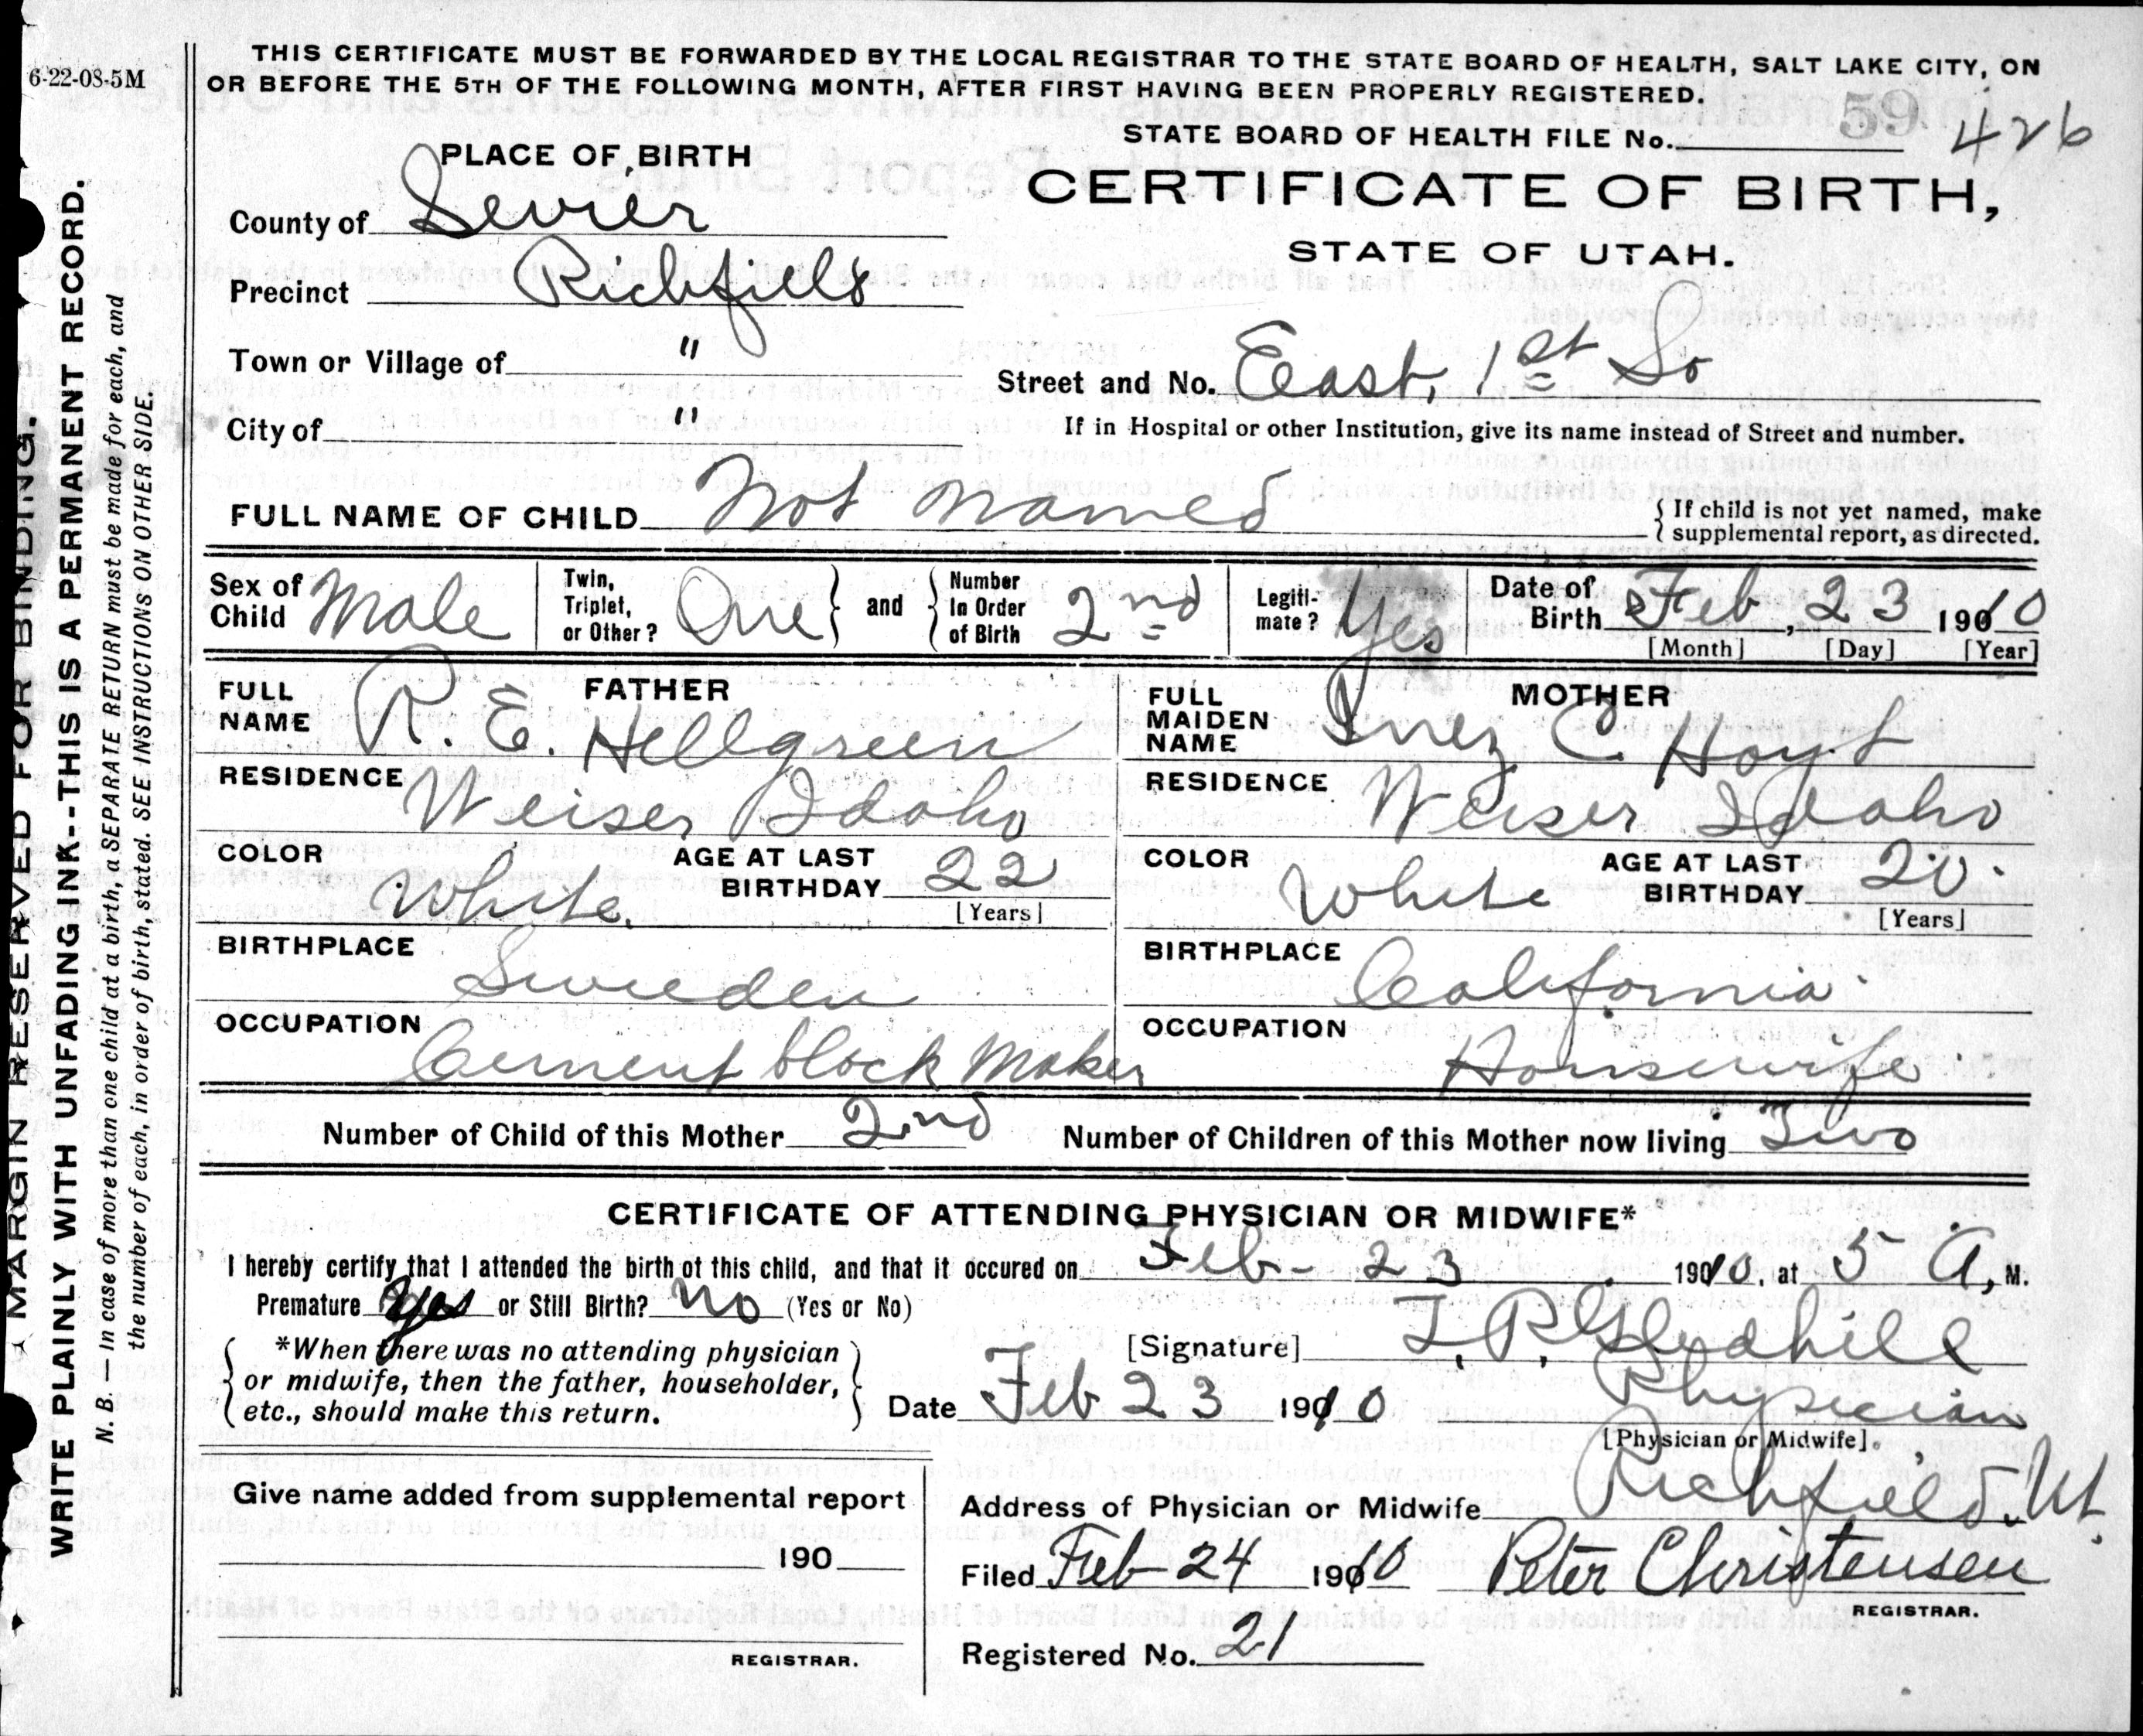 6-22-08-5M
THIS CERTIFICATE MUST BE FORWARDED BY THE LOCAL REGISTRAR TO THE STATE BOARD OF HEALTH, SALT LAKE CITY, ON
OR BEFORE THE 5TH OF THE FOLLOWING MONTH, AFTER FIRST HAVING BEEN PROPERLY REGISTERED.
STATE BOARD OF HEALTH FILE No. 59 426
PLACE OF BIRTH
CERTIFICATE OF BIRTH,
STATE OF UTAH.
County of Sevier
Precinct Richfield
Town or Village of "
Street and No. East, 1st So
City of "
If in Hospital or other Institution, give its name instead of Street and number.
FULL NAME OF CHILD Not Named
{ If child is not yet named, make
supplemental report, as directed.
Sex of Child Male
Twin, Triplet, or Other? One } and { Number In Order of Birth 2nd
Legiti-mate? Yes
Date of Birth Feb, 23 19010
[Month] [Day] [Year]
FATHER
FULL NAME R. E. Hellgreen
RESIDENCE Weiser Idaho
COLOR White.
AGE AT LAST BIRTHDAY 22
[Years]
BIRTHPLACE Sweeden
OCCUPATION Cement block Maker
MOTHER
FULL MAIDEN NAME Inez C Hoyt
RESIDENCE Weiser Idaho
COLOR White
AGE AT LAST BIRTHDAY 20.
[Years]
BIRTHPLACE California
OCCUPATION Housewife
Number of Child of this Mother 2nd Number of Children of this Mother now living Two
CERTIFICATE OF ATTENDING PHYSICIAN OR MIDWIFE*
I hereby certify that I attended the birth of this child, and that it occured on Feb- 23 1910, at 5 A, M.
Premature Yes or Still Birth? No (Yes or No)
{ *When there was no attending physician
or midwife, then the father, householder,
etc., should make this return. }
[Signature] T. P. Gledhill
Physician
[Physician or Midwife].
Date Feb 23 1910
Give name added from supplemental report
190
REGISTRAR.
Address of Physician or Midwife Richfield. Ut.
Filed Feb-24 1910 Peter Christensen
REGISTRAR.
Registered No. 21
MARGIN RESERVED FOR BINDING.
WRITE PLAINLY WITH UNFADING INK--THIS IS A PERMANENT RECORD.
N. B. — In case of more than one child at a birth, a SEPARATE RETURN must be made for each, and
the number of each, in order of birth, stated. SEE INSTRUCTIONS ON OTHER SIDE.